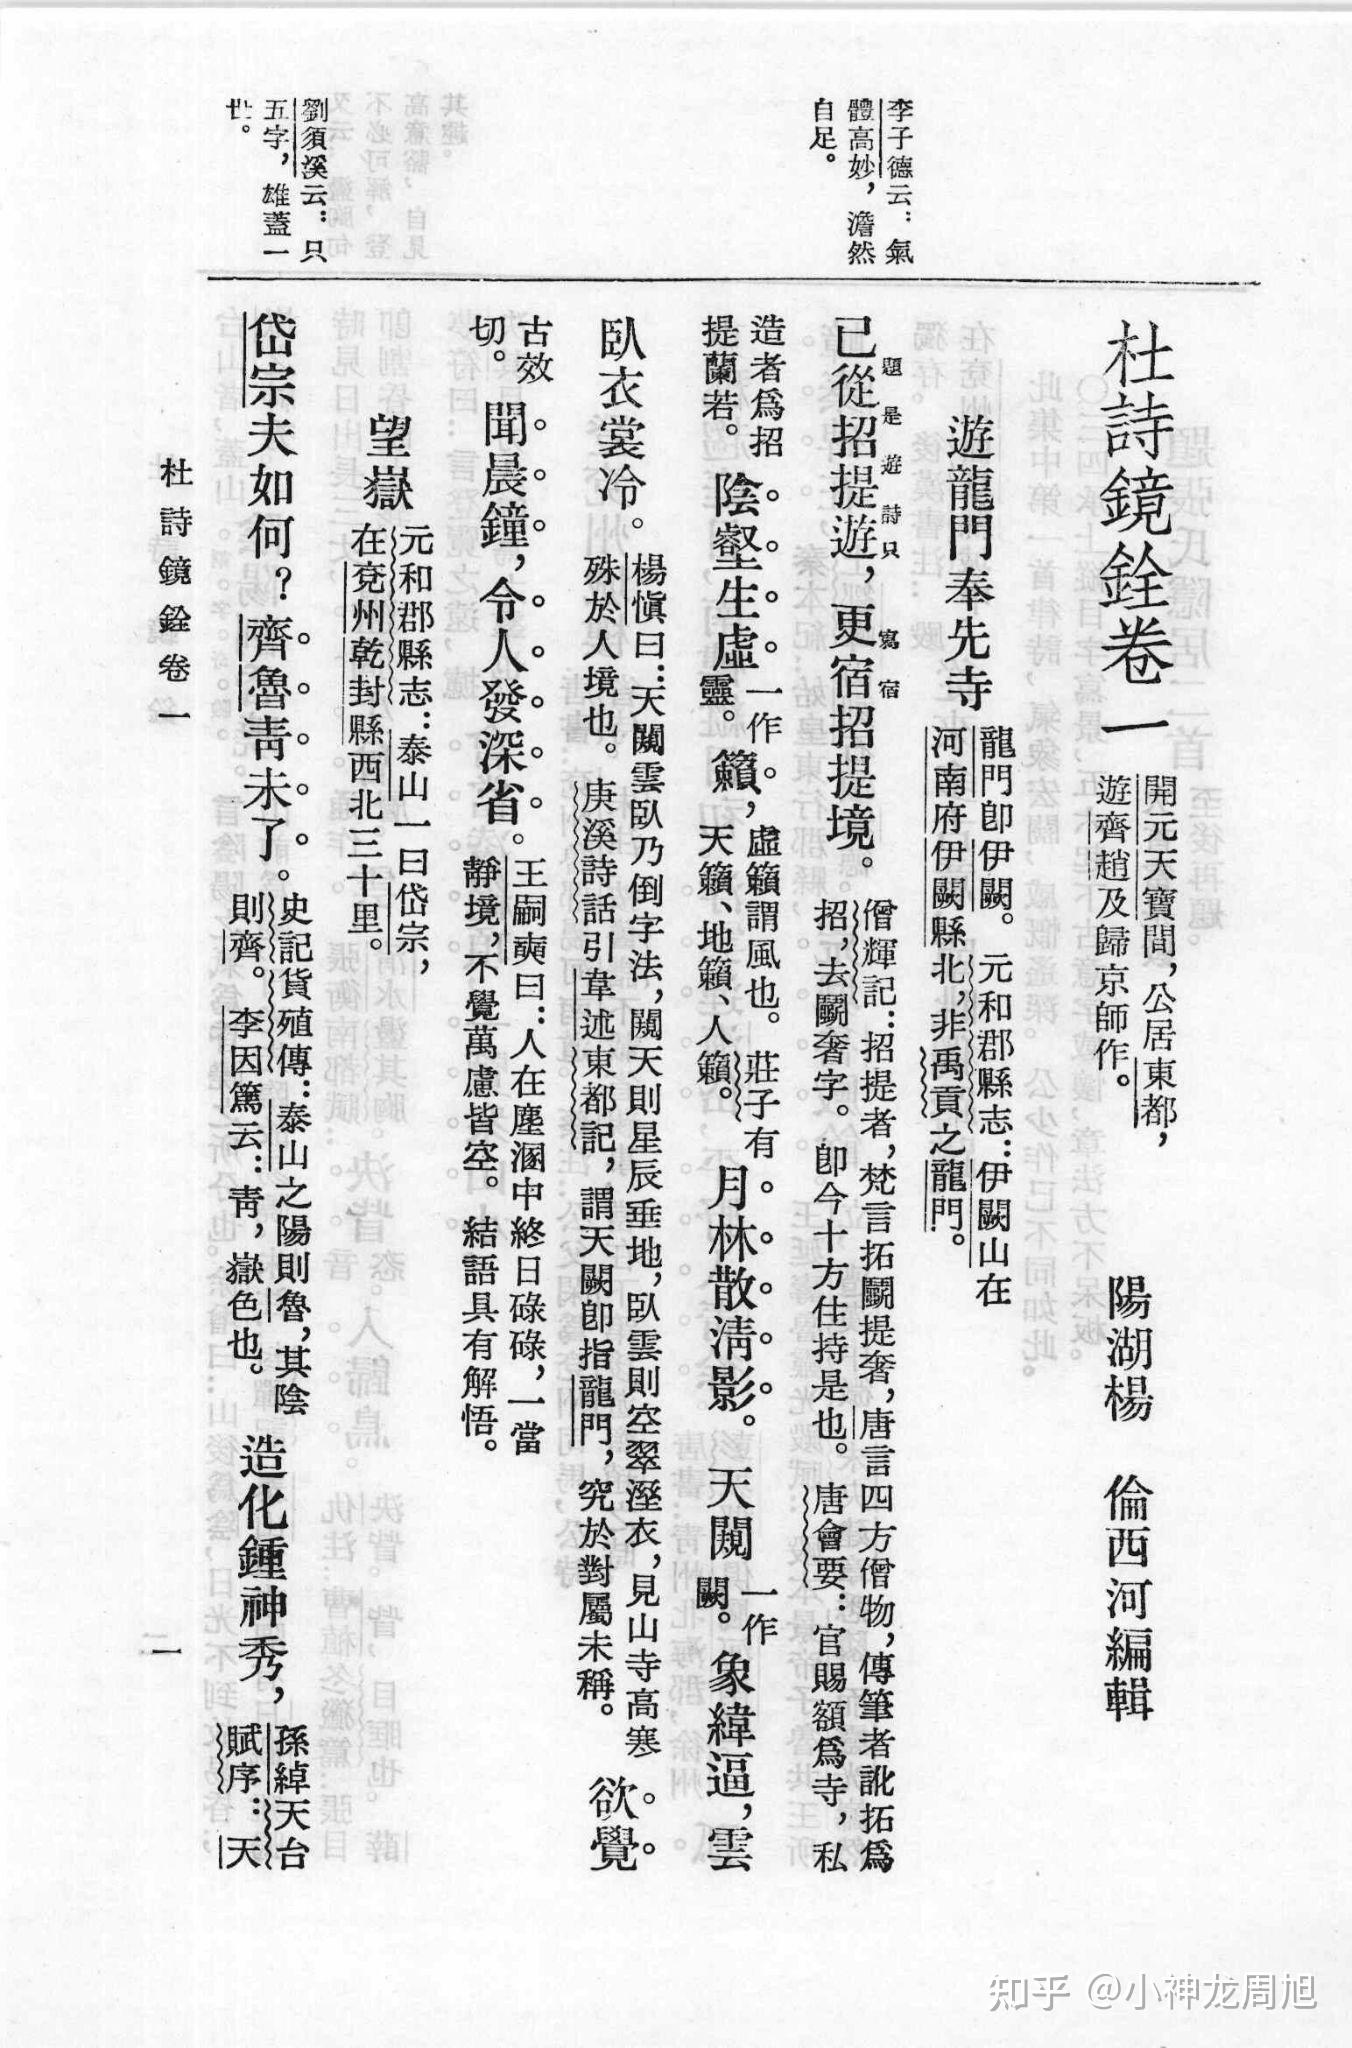 李子德云：氣
體高妙，澹然
自足。
劉須溪云：只
五字，雄蓋一
世。
杜詩鏡銓卷一
開元天寶間，公居東都，
遊齊趙及歸京師作。
陽湖楊　倫西河編輯
遊龍門奉先寺
龍門卽伊闕。元和郡縣志：伊闕山在
河南府伊闕縣北，非禹貢之龍門。
題是遊詩只
寫宿
已從招提遊，更宿招提境。
僧輝記：招提者，梵言拓鬭提奢，唐言四方僧物，傳筆者訛拓爲
招，去鬭奢字。卽今十方住持是也。唐會要：官賜額爲寺，私
造者爲招
提蘭若。
陰壑生虛
一作
靈。
籟，
虛籟謂風也。莊子有
天籟、地籟、人籟。
月林散淸影。天闚
一作
闕。
象緯逼，雲
臥衣裳冷。
楊愼曰：天闚雲臥乃倒字法，闚天則星辰垂地，臥雲則空翠溼衣，見山寺高寒
殊於人境也。庚溪詩話引韋述東都記，謂天闕卽指龍門，究於對屬未稱。
欲覺
古效
切。
聞晨鐘，令人發深省。
王嗣奭曰：人在塵溷中終日碌碌，一當
靜境，不覺萬慮皆空。結語具有解悟。
望嶽
元和郡縣志：泰山一曰岱宗，
在兗州乾封縣西北三十里。
岱宗夫如何？齊魯靑未了。
史記貨殖傳：泰山之陽則魯，其陰
則齊。李因篤云：靑，嶽色也。
造化鍾神秀，
孫綽天台
賦序：天
杜詩鏡銓卷一
一
知乎 @小神龙周旭